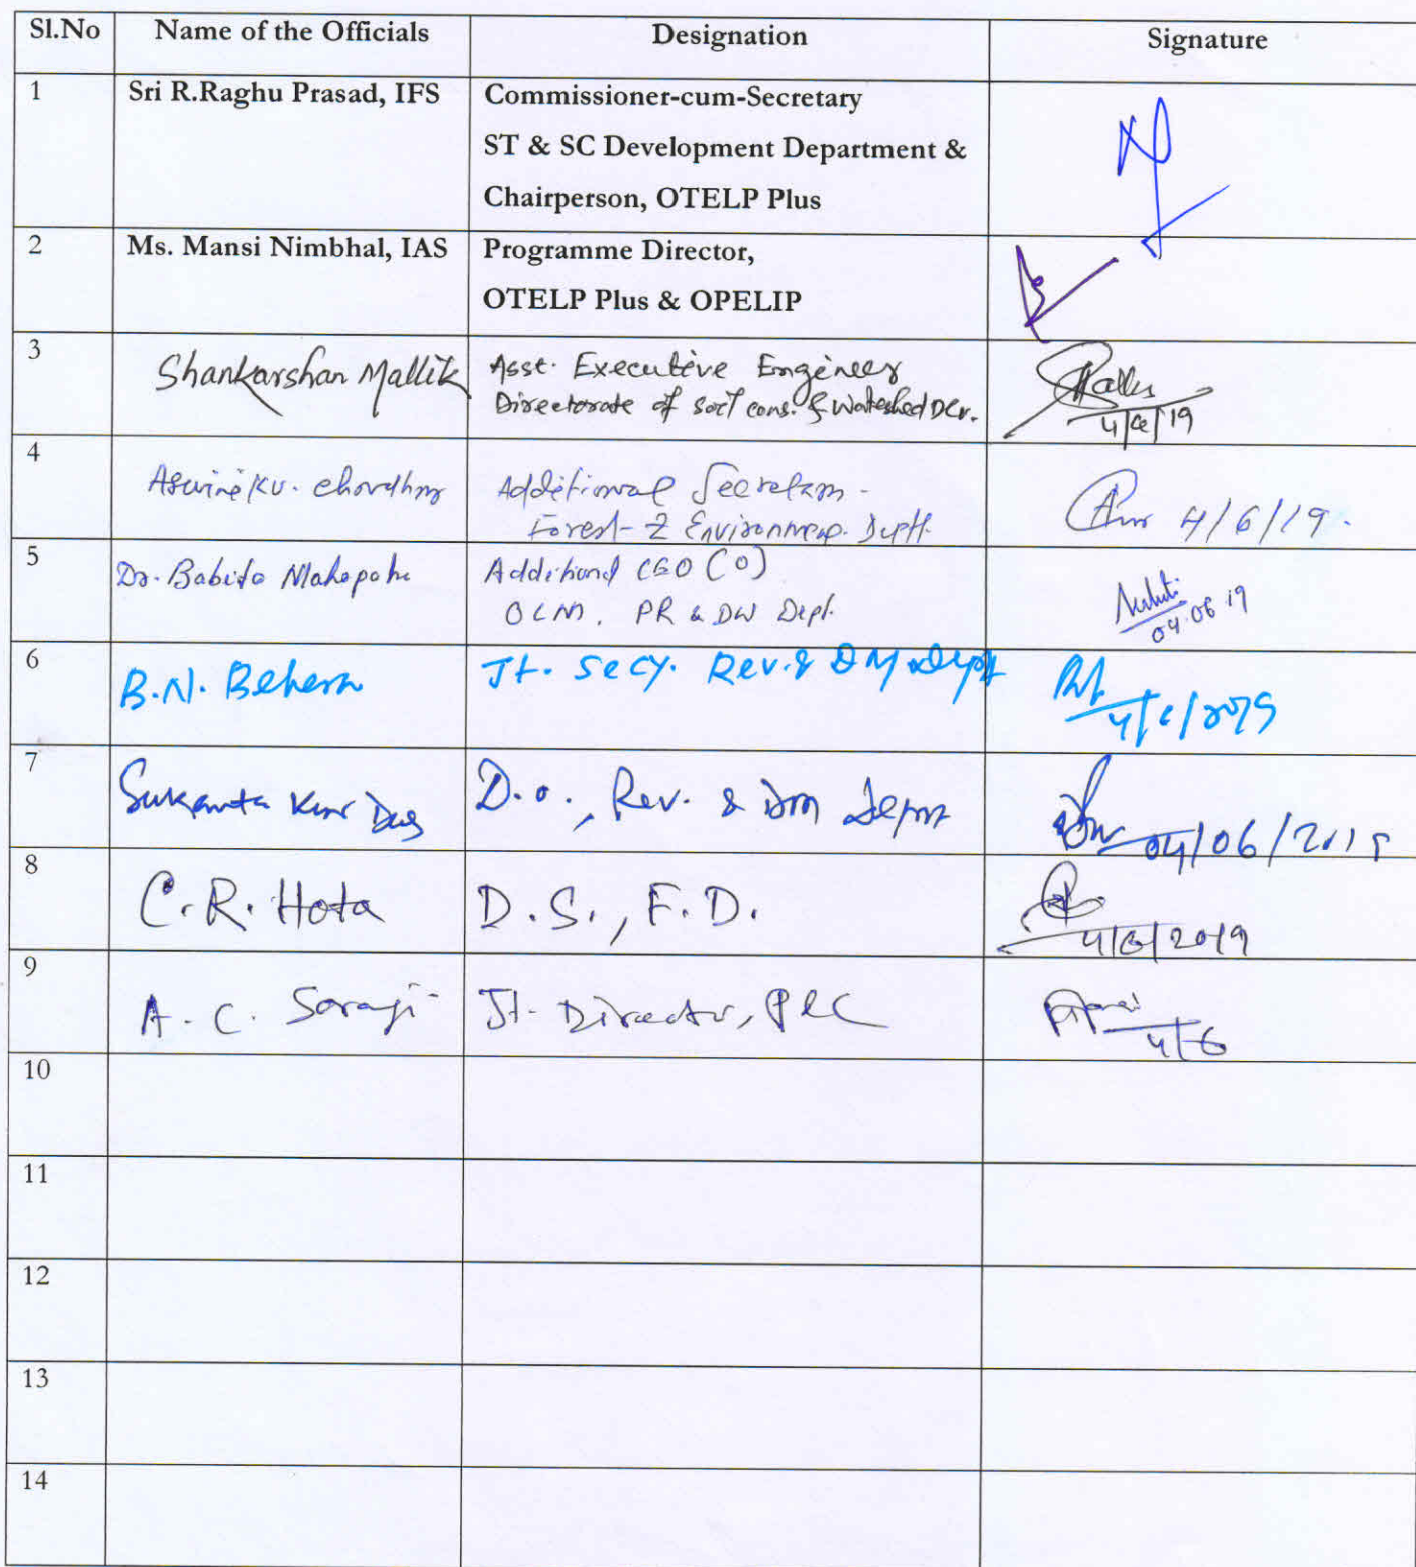 Sl.No Name of the Officials Designation Signature
1 Sri R.Raghu Prasad, IFS Commissioner-cum-Secretary
ST & SC Development Department &
Chairperson, OTELP Plus
2 Ms. Mansi Nimbhal, IAS Programme Director,
OTELP Plus & OPELIP
3 Shankarshan Mallik Asst. Executive Engineer
Directorate of Soil cons. & Watershed Dev.
4/6/19
4 Aswini Ku. Chowdhury Additional Secretary
Forest & Environment Deptt.
4/6/19.
5 Dr. Babita Mahapatra Additional CEO (O)
OLM, PR & DW Dept.
04.06.19
6 B.N. Behera Jt. Secy. Rev. & DM Dept
4/6/2019
7 Sukanta Kumar Das D.O., Rev. & DM Deptt
04/06/2019
8 C.R. Hota D.S., F.D.
4/6/2019
9 A.C. Jt. Director,
4/6
10
11
12
13
14